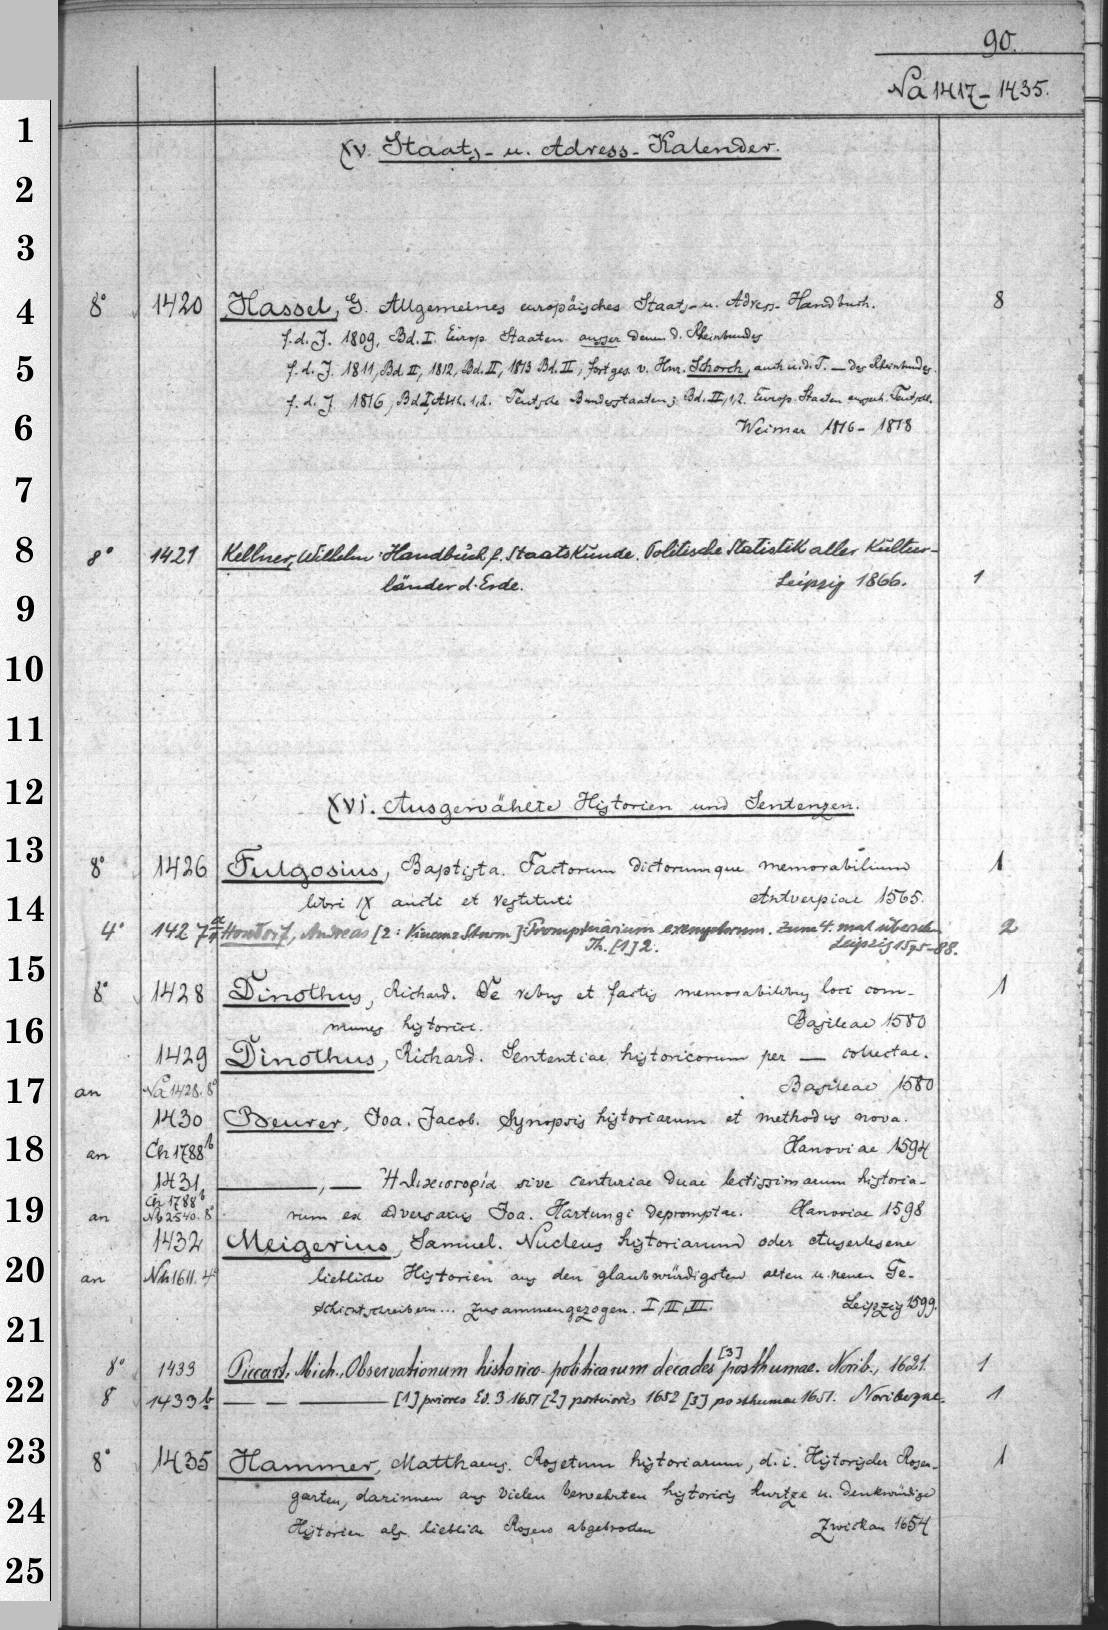 90.
Na 1417-1435.
1
XV. Staats- u. Adress-Kalender.
2
3
4
8° 1420 Hassel, G. Allgemeines europäisches Staats- u. Adress-Handbuch. 8
f. d. J. 1809, Bd. I. Europ. Staaten ausser denen d. Rheinbundes
5
f. d. J. 1811, Bd. II, 1812, Bd. II, 1813 Bd. II; fortges. v. Hnr. Schorch, auch u. d. T. — des Rheinbundes.
f. d. J. 1816, Bd I, Abth. 1, 2. Teutsche Bundesstaaten; Bd. II, 1, 2. Europ. Staaten ausserh. Teutschl.
6
Weimar 1816-1818
7
8
8° 1421 Kellner, Wilhelm: Handbuch f. Staatskunde. Politische Statistik aller Kultur-
länder d. Erde. Leipzig 1866. 1
9
10
11
12
XVI. Ausgewählte Historien und Sentenzen.
13
8° 1426 Fulgosius, Baptista. Factorum dictorumque memorabilium 1
libri IX aucti et restituti Antverpiae 1565.
14
4° 1427 Hondorf, Andreas [2: Vincenz Sturm]: Promptuarium exemplorum. Zum 4. mal übersehn 2
Th. [1] 2. Leipzig 1595-88.
15
8° 1428 Dinothus, Richard. De rebus et factis memorabilibus loci com- 1
munes historici. Basileae 1580
16
1429 Dinothus, Richard. Sententiae historicorum per — collectae.
17
an Na 1428. 8° Basileae 1580
1430 Beurer, Joa. Jacob. Synopsis historiarum et methodus nova.
18
an Ch 1788b Hanoviae 1594
1431 —, — sive centuriae duae lectissimarum historia-
Ch 1788b
19
an Nb 2540. 8° rum ex adversariis Joa. Hartungi depromptae. Hanoviae 1598
1432 Meigerius, Samuel. Nucleus historiarum oder Auserlesene
20
an Nh 1611. 4° liebliche Historien aus den glaubwürdigsten alten u. neuen Ge-
schichtschreibern... zusammengezogen. I, II, III. Leipzig 1599.
21
8° 1433 Piccart, Mich., Observationum historico-politicarum decades [3] posthumae. Norib., 1621. 1
22
8 1433b — — — [1] priores Ed. 3 1651 [2] posteriores 1652 [3] posthumae 1651. Noribergae. 1
23
8° 1435 Hammer, Matthaeus. Rosetum historiarum, d. i. Historischer Rosen- 1
garten, darinnen aus vielen bewehrten historicis kurtze u. denkwürdige
24
Historien als liebliche Rosen abgebrochen Zwickau 1654
25